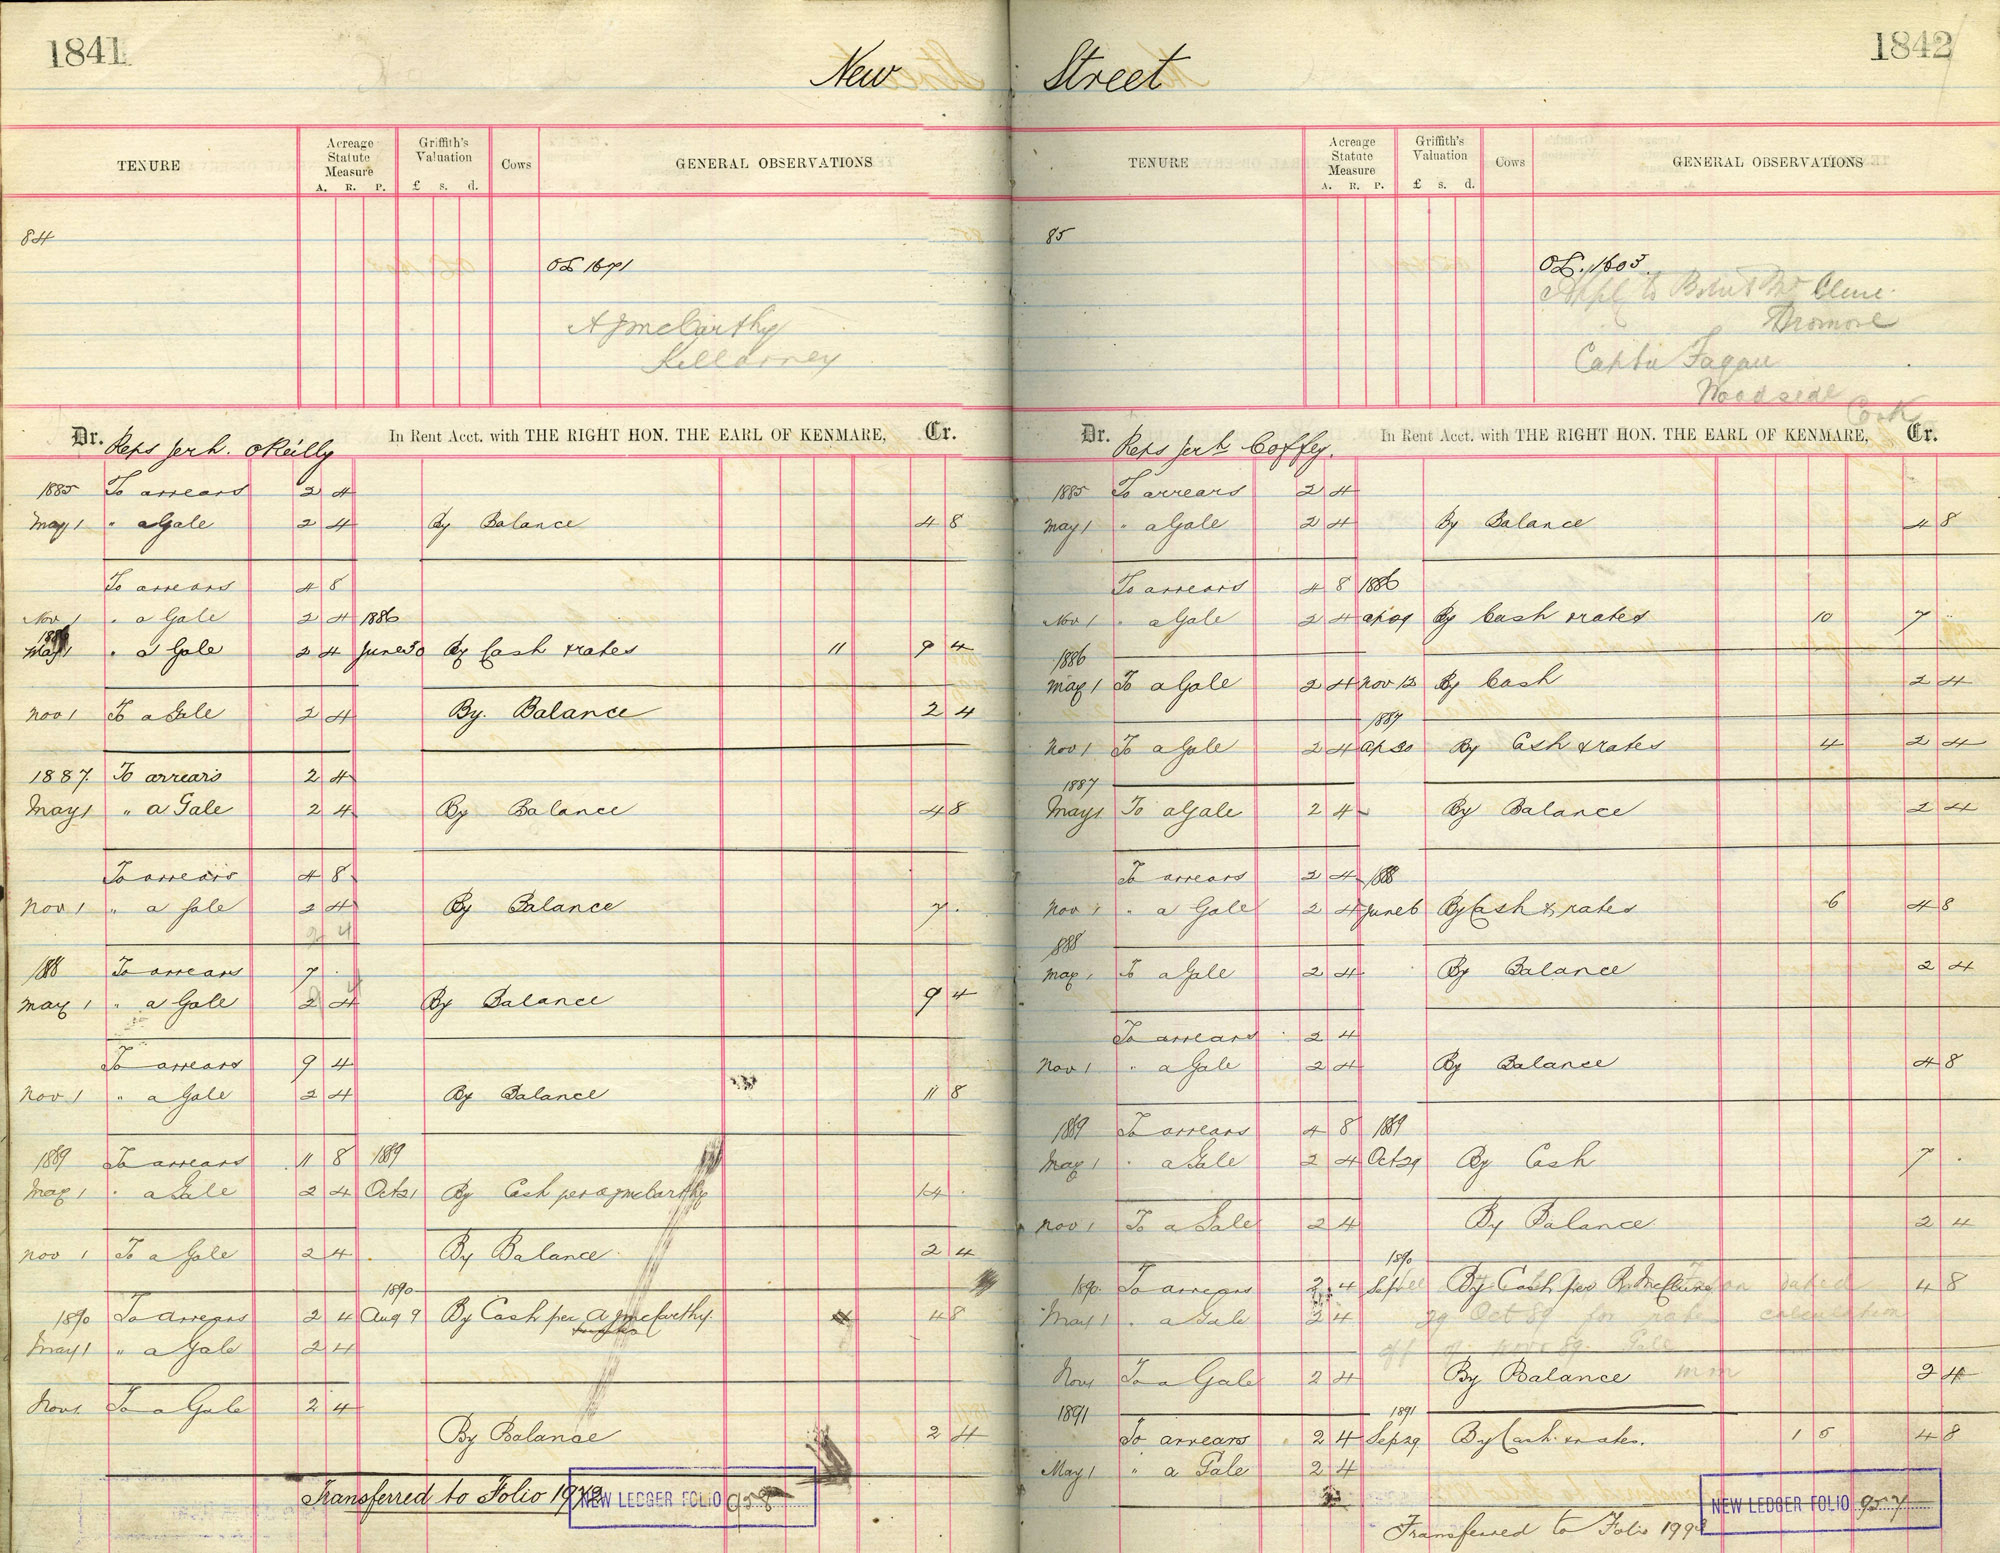 1841
New
TENURE
Acreage Statute Measure
A. R. P.
Griffith's Valuation
£ s. d.
Cows
GENERAL OBSERVATIONS
84
OL 1671
A J McCarthy
Killarney
Dr. Reps Jerh. OReilly In Rent Acct. with THE RIGHT HON. THE EARL OF KENMARE, Cr.
1885 To arrears 2 4
May 1 " a Gale 2 4 By Balance 4 8
To arrears 4 8
Nov 1 " a Gale 2 4 1886
1886
May 1 " a Gale 2 4 June 30 By Cash & rates 11 9 4
Nov 1 To a Gale 2 4 By Balance 2 4
1887 To arrears 2 4
May 1 " a Gale 2 4 By Balance 4 8
To arrears 4 8
Nov 1 " a Gale 2 4 By Balance 7 .
2 4
1888 To arrears 7 .
May 1 " a Gale 2 4 By Balance 9 4
To arrears 9 4
Nov 1 " a Gale 2 4 By Balance 11 8
1889 To arrears 11 8 1889
May 1 " a Gale 2 4 Oct 21 By Cash per A J McCarthy 14 .
Nov 1 To a Gale 2 4 By Balance 2 4
1890
1890 To arrears 2 4 Aug 9 By Cash per A J McCarthy 4 8
May 1 " a Gale 2 4
Nov 1 To a Gale 2 4
By Balance 2 4
Transferred to Folio
NEW LEDGER FOLIO 958
1842
Street
TENURE
Acreage Statute Measure
A. R. P.
Griffith's Valuation
£ s. d.
Cows
GENERAL OBSERVATIONS
85
OL. 1603.
Appl to Robert Mc Clure
Dromore
Captn Fagan
Woodside
Cork
Dr. Reps Jerh Coffey. In Rent Acct. with THE RIGHT HON. THE EARL OF KENMARE, Cr.
1885 To arrears 2 4
May 1 " a Gale 2 4 By Balance 4 8
To arrears 4 8 1886
Nov 1 " a Gale 2 4 Ap 29 By Cash & rates 10 7 .
1886
May 1 To a Gale 2 4 Nov 12 By Cash 2 4
1887
Nov 1 To a Gale 2 4 Ap 30 By Cash & rates 4 2 4
1887
May 1 To a Gale 2 4 By Balance 2 4
To arrears 2 4 1888
Nov 1 " a Gale 2 4 June 6 By Cash & rates 6 4 8
1888
May 1 To a Gale 2 4 By Balance 2 4
To arrears 2 4
Nov 1 " a Gale 2 4 By Balance 4 8
1889 To arrears 4 8 1889
May 1 " a Gale 2 4 Oct 29 By Cash 7 .
Nov 1 To a Gale 2 4 By Balance 2 4
1890
1890 To arrears 2 4 Sep By Cash per R McClure 4 8
May 1 " a Gale 2 4 29 Oct 89 for rates calculation
Nov 89 Gale
Nov 1 To a Gale 2 4 By Balance 2 4
1891 1891
To arrears 2 4 Sep 29 By Cash & rates. 1 5 4 8
May 1 " a Gale 2 4
NEW LEDGER FOLIO 957
Transferred to Folio 1993